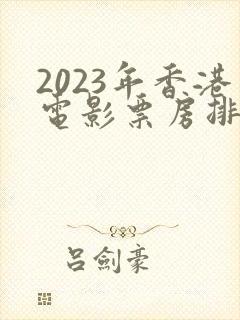 2023年香港
電影票房排
呂劍豪